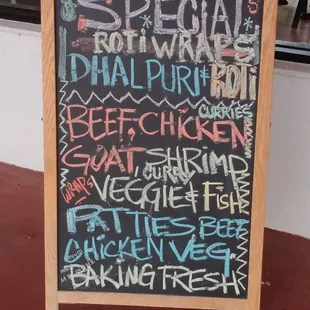 $ SPECIAL $
ROTI WRAPS
DHALPURI & ROTI
CURRIES
BEEF, CHICKEN
GOAT, SHRIMP
CURRY
WRAPS VEGGIE & FISH
PATTIES BEEF
CHICKEN VEG
BAKING FRESH